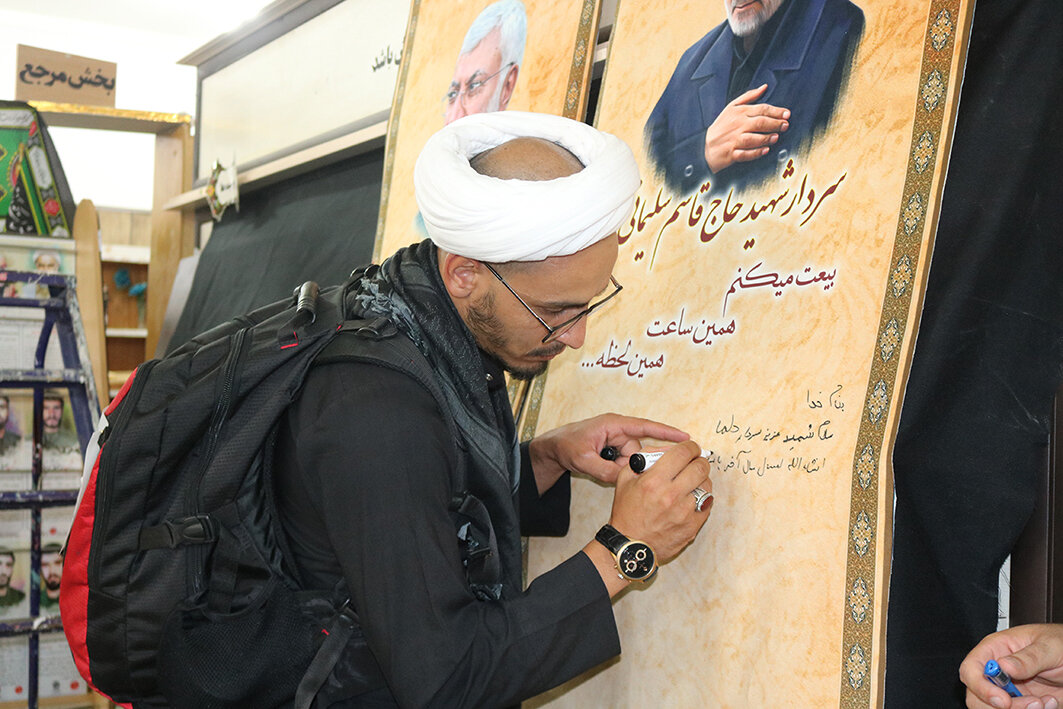 بخش مرجع
باشد
سردار شهید حاج قاسم سلیمانی
بیعت میکنم
همین ساعت
همین لحظه ...
بنام خدا
سلام شهید عزیز سردار دلها
انشاءالله امسال سال آخر باشه